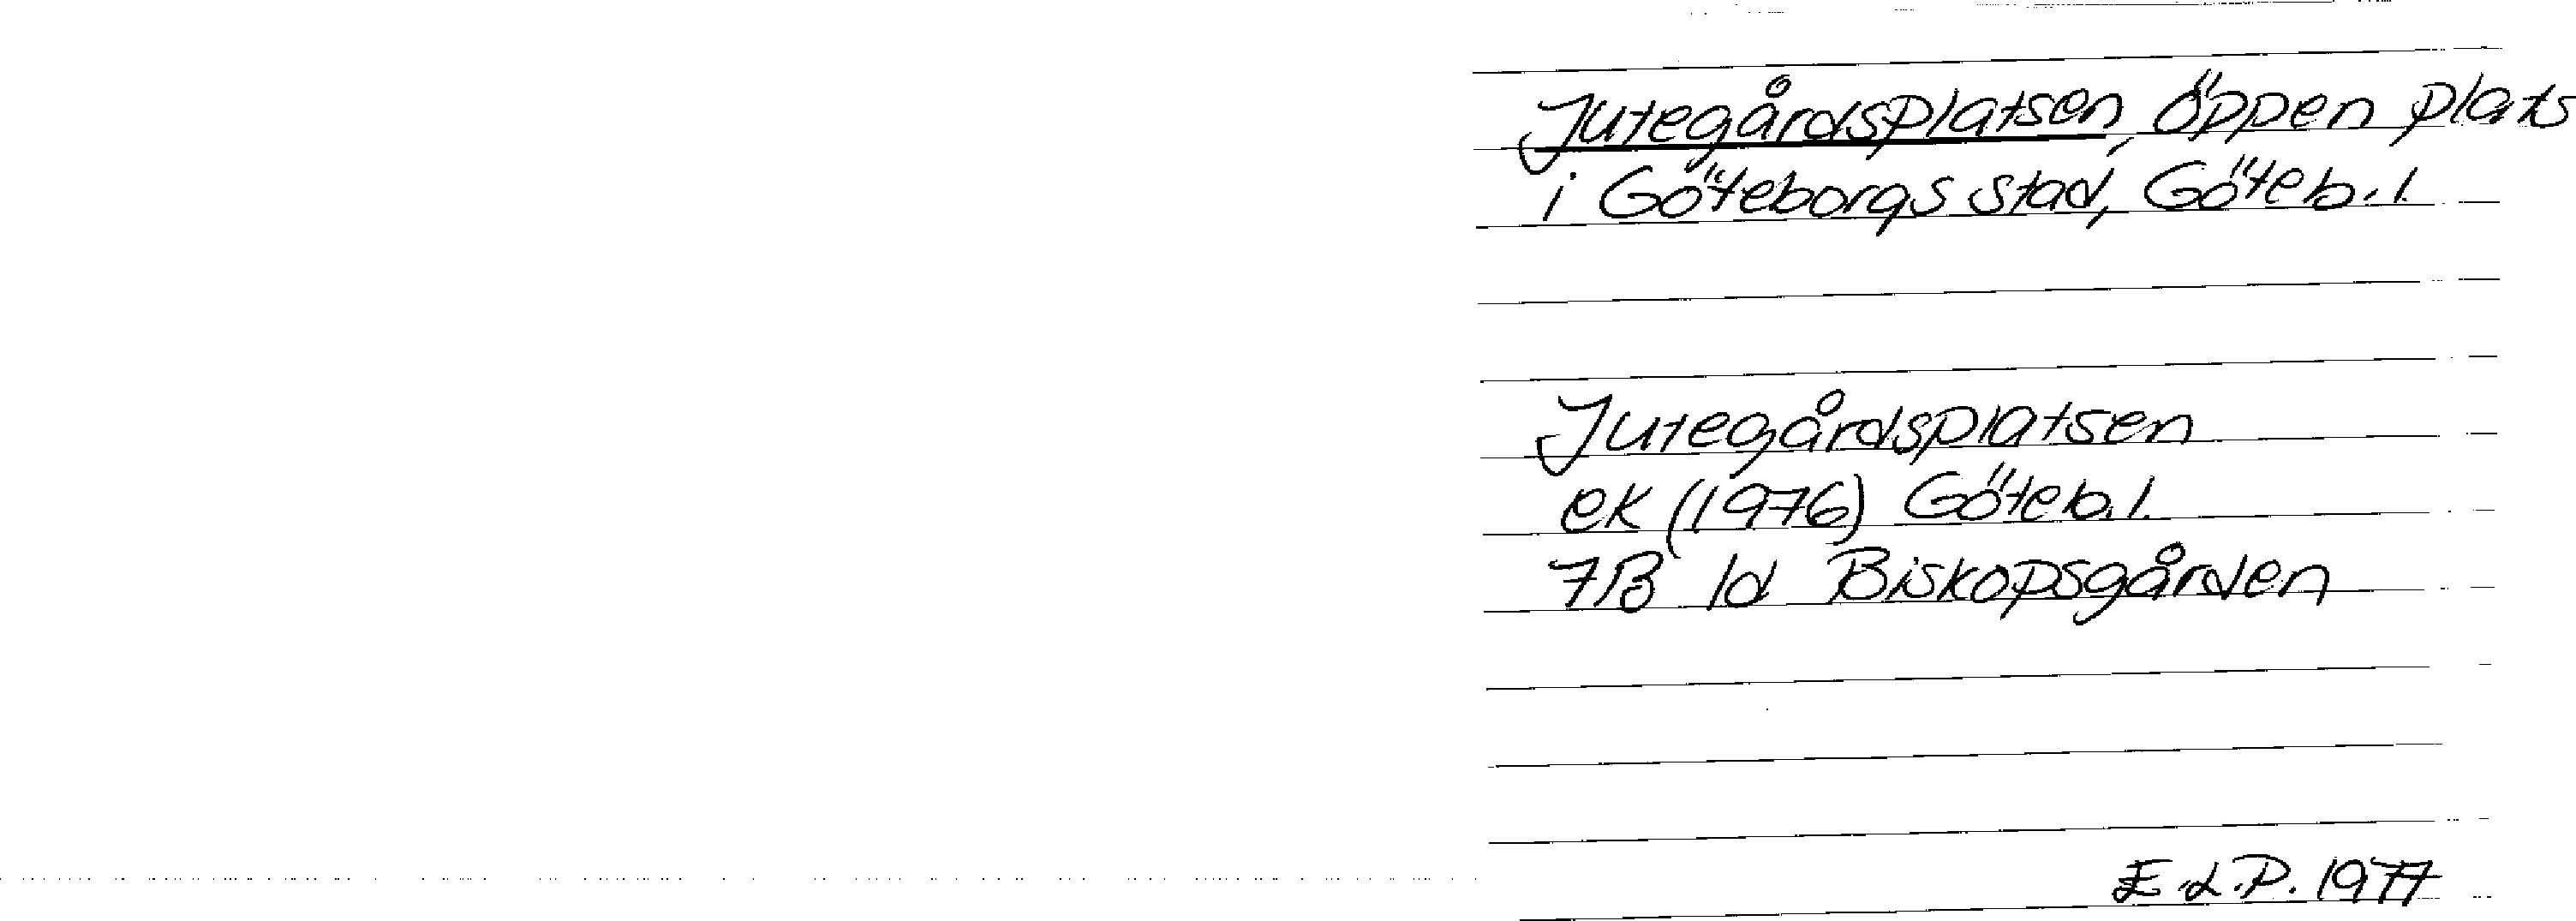 Jutegårdsplatsen, öppen plats
i Göteborgs stad, Göteb. l.
Jutegårdsplatsen
ek (1976) Göteb. l.
7B 1d Biskopsgården
E.L.P. 1977